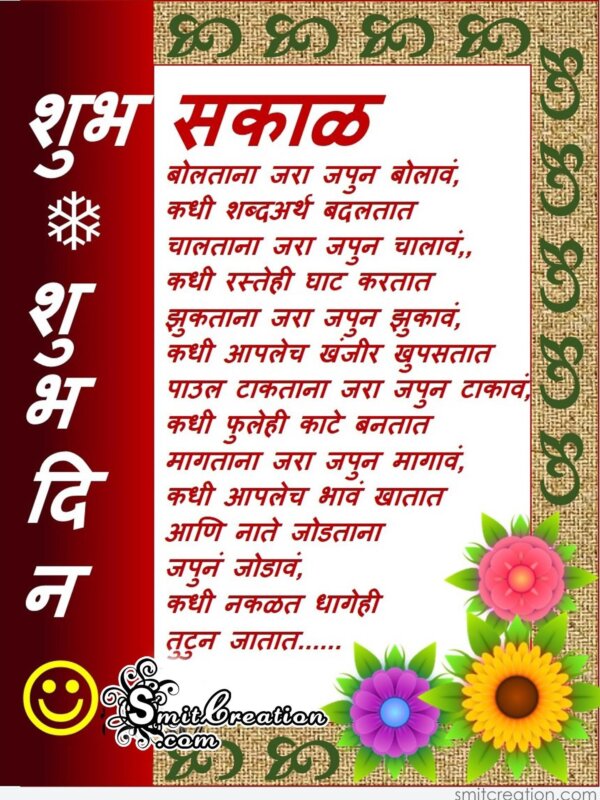 शुभ सकाळ
शुभ दिन
बोलताना जरा जपुन बोलावं,
कधी शब्दअर्थ बदलतात
चालताना जरा जपुन चालावं,,
कधी रस्तेही घाट करतात
झुकताना जरा जपुन झुकावं,
कधी आपलेच खंजीर खुपसतात
पाउल टाकताना जरा जपुन टाकावं,
कधी फुलेही काटे बनतात
मागताना जरा जपुन मागावं,
कधी आपलेच भावं खातात
आणि नाते जोडताना
जपुनं जोडावं,
कधी नकळत धागेही
तुटुन जातात......
SmitCreation
.com
smitcreation.com